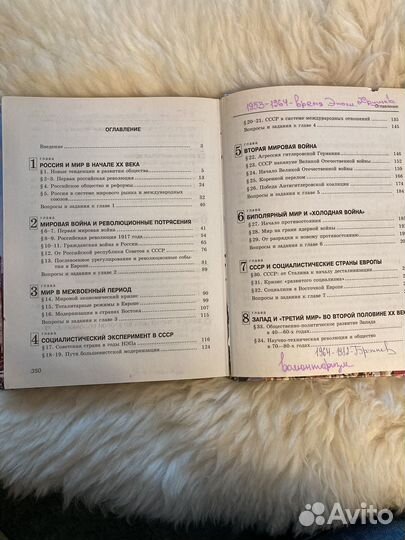 ОГЛАВЛЕНИЕ
Введение 3
ГЛАВА
1 РОССИЯ И МИР В НАЧАЛЕ XX ВЕКА
§1. Новые тенденции в развитии общества 5
§2-3. Первая российская революция 13
§4. Российское общество и реформы 24
§5. Россия в системе мирового рынка и международных
союзов 32
Вопросы и задания к главе 1 40
ГЛАВА
2 МИРОВАЯ ВОЙНА И РЕВОЛЮЦИОННЫЕ ПОТРЯСЕНИЯ
§6-7. Первая мировая война 41
§8-9. Российская революция 1917 года 54
§10-11. Гражданская война в России 65
§12. От Российской республики Советов к СССР 76
§13. Послевоенное урегулирование и революционные собы-
тия в Европе 82
Вопросы и задания к главе 2 89
ГЛАВА
3 МИР В МЕЖВОЕННЫЙ ПЕРИОД
§14. Мировой экономический кризис 90
§15. Тоталитарные режимы в Европе 99
§16. Модернизация в странах Востока
Вопросы и задания к главе 3
ГЛАВА
4 СОЦИАЛИСТИЧЕСКИЙ ЭКСПЕРИМЕНТ В СССР
§17. Советская страна в годы НЭПа 116
§18-19. Пути большевистской модернизации 124
350
1953-1964-время
ОГЛАВЛЕНИЕ
§20-21. СССР в системе международных отношений 135
Вопросы и задания к главе 4 145
ГЛАВА
5 ВТОРАЯ МИРОВАЯ ВОЙНА
§22. Агрессия гитлеровской Германии 146
§23. СССР накануне Великой Отечественной войны
§24. Начало Великой Отечественной войны
§25. Коренной перелом
§26. Победа Антигитлеровской коалиции
Вопросы и задания к главе 5
ГЛАВА
6 БИПОЛЯРНЫЙ МИР И «ХОЛОДНАЯ ВОЙНА»
§27. Начало противостояния
§28. Мир на грани ядерной войны
§29. От разрядки к новому противостоянию
Вопросы и задания к главе 6
ГЛАВА
7 СССР И СОЦИАЛИСТИЧЕСКИЕ СТРАНЫ ЕВРОПЫ
§30. СССР: от Сталина к началу десталинизации
§31. Кризис «развитого социализма»
§32. Социализм в Восточной Европе
Вопросы и задания к главе 7
ГЛАВА
8 ЗАПАД И «ТРЕТИЙ МИР» ВО ВТОРОЙ ПОЛОВИНЕ XX ВЕКА
§33. Общественно-политическое развитие Запада
в 40—60-х годах
§34. Научно-техническая революция и общество
в 70—80-х годах
волюнтаризм
Avito